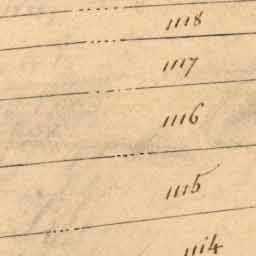 1118
1117
1116
1115
1114